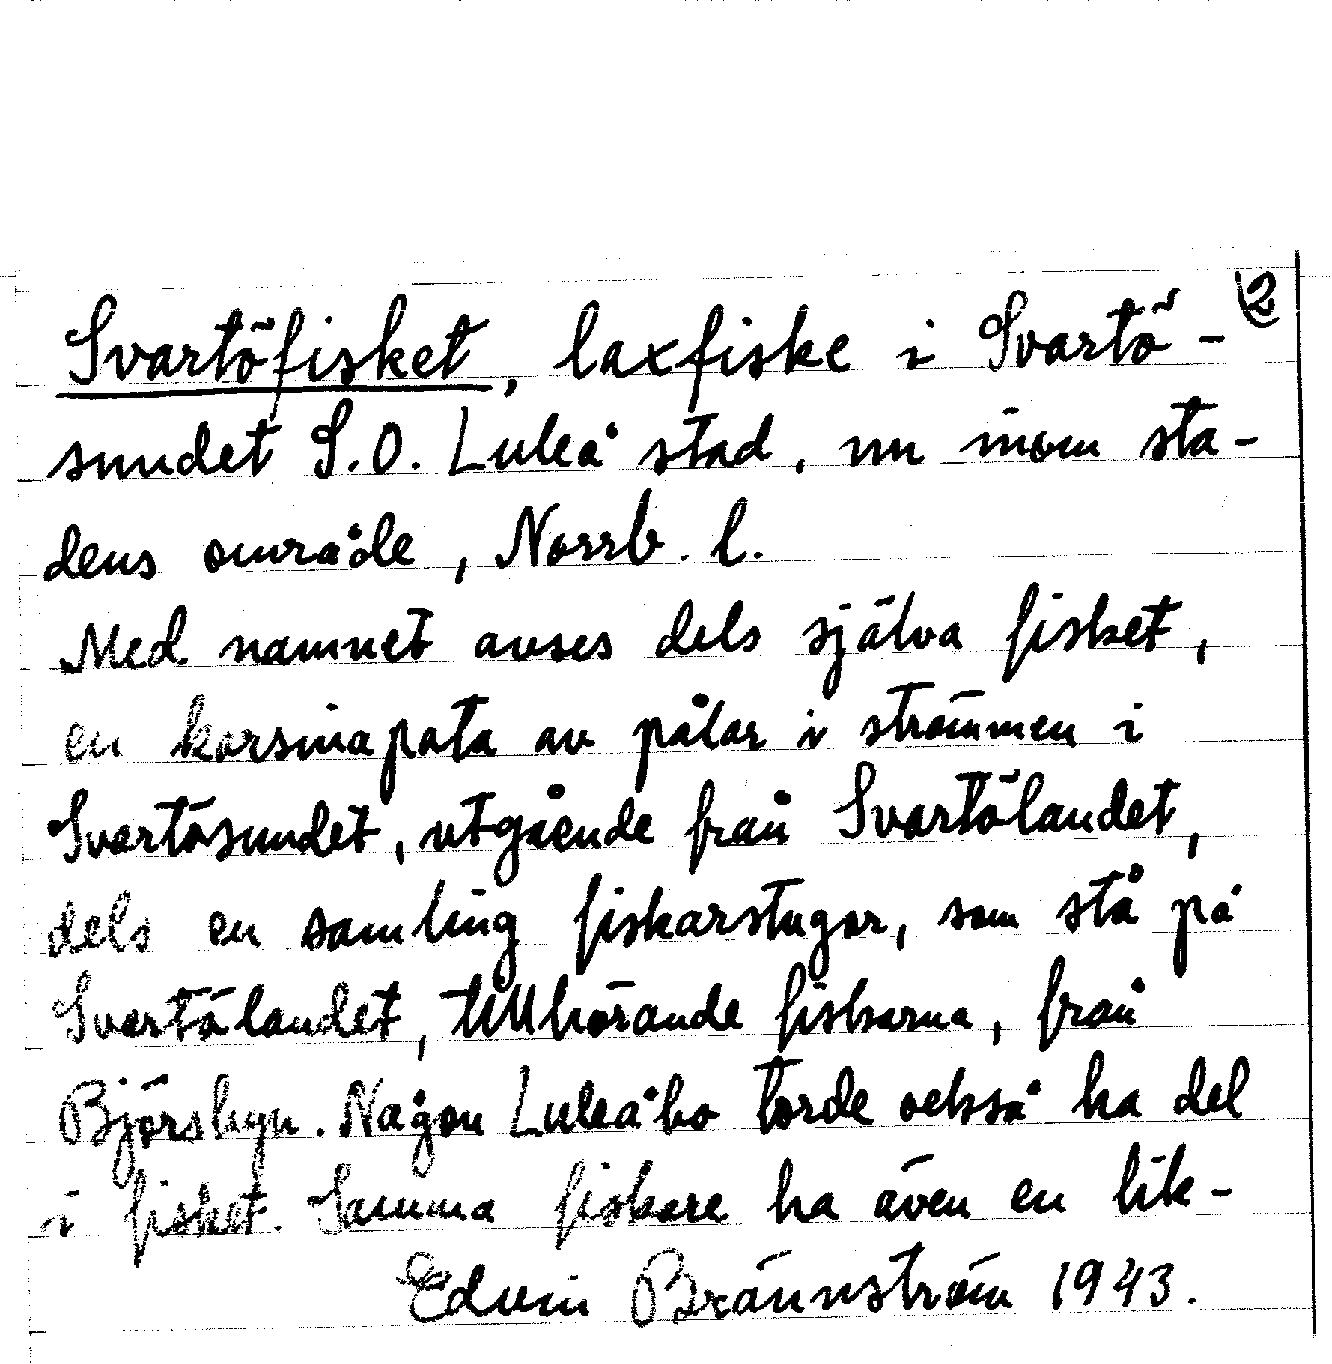 Svartöfisket, laxfiske i Svartö- 2
sundet S.O. Luleå stad, nu inom sta-
dens område, Norrb. l.
Med namnet avses dels själva fisket,
en karsinapata av pålar i strömmen i
Svartösundet, utgående från Svartölandet,
dels en samling fiskarstugor, som stå på
Svartölandet, tillhörande fiskarna, från
Björsbyn. Någon Luleåbo torde också ha del
i fisket. Samma fiskare ha även en lik-
Edvin Brännström 1943.